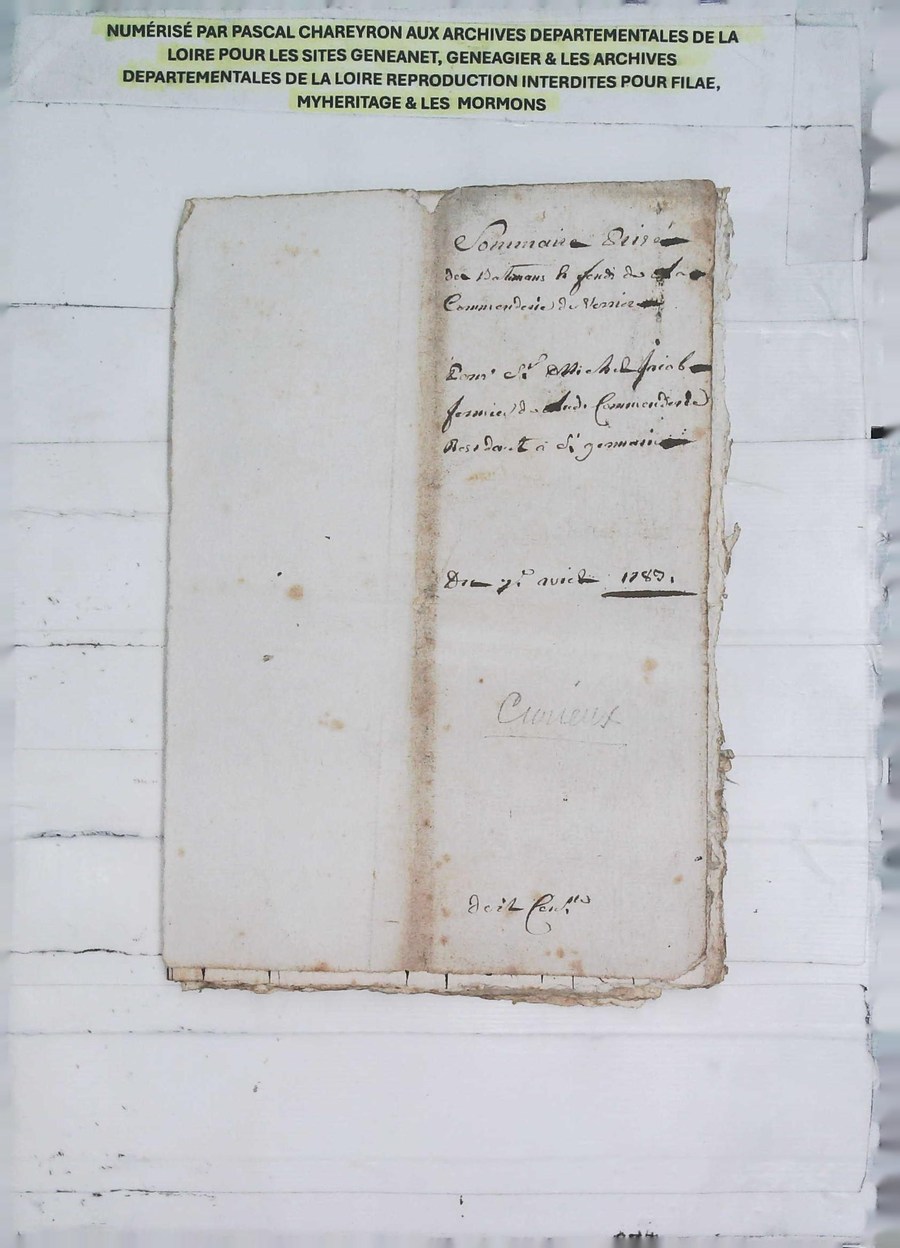 NUMÉRISÉ PAR PASCAL CHAREYRON AUX ARCHIVES DEPARTEMENTALES DE LA
LOIRE POUR LES SITES GENEANET, GENEAGIER & LES ARCHIVES
DEPARTEMENTALES DE LA LOIRE REPRODUCTION INTERDITES POUR FILAE,
MYHERITAGE & LES MORMONS
Sommaire Prisé
des Batimans & fonds de la
Commenderie de Verrier
Pour Sr Michel
fermier de lade Commenderie
Residant a St germain
Du 7e avril 1783.
doit